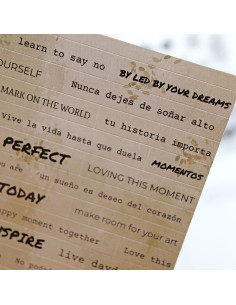 learn to say no
BY LED BY YOUR DREAMS
OURSELF
Nunca dejes de soñar alto
MARK ON THE WORLD
tu historia importa
vive la vida hasta que duela
MOMENTOS
PERFECT
LOVING THIS MOMENT
you are
un sueño es deseo del corazón
TODAY
make room for your art
happy moment together
Love this
NSPIRE
live
No